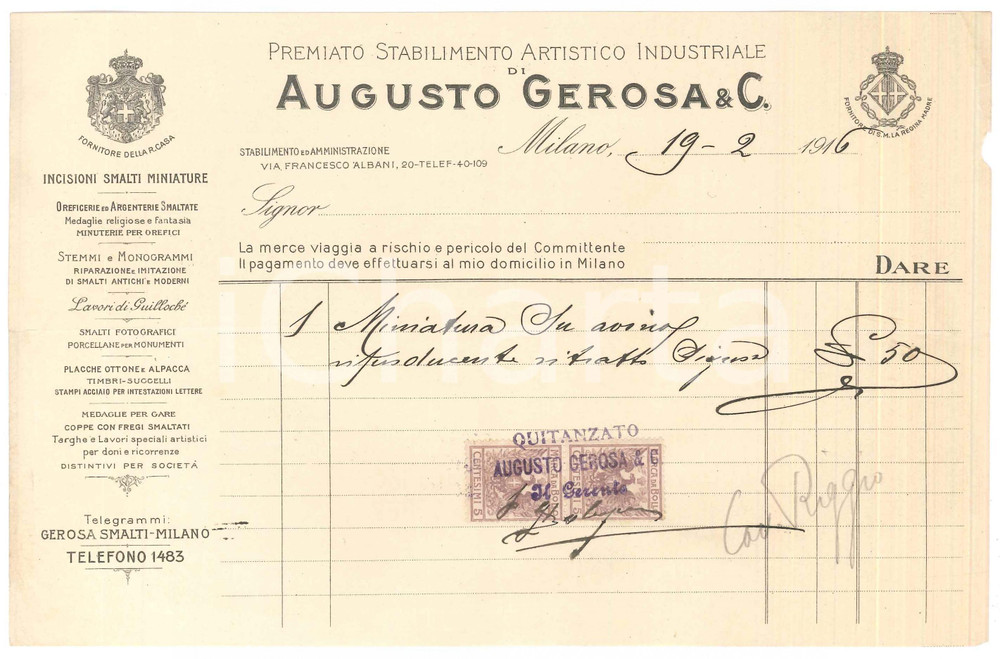 PREMIATO STABILIMENTO ARTISTICO INDUSTRIALE
DI
AUGUSTO GEROSA & C.
FORNITORE DELLA R. CASA
FORNITORE DI S.M. LA REGINA MADRE
STABILIMENTO ED AMMINISTRAZIONE
VIA FRANCESCO ALBANI, 20-TELEF-40-109
Milano, 19-2 1916
Signor
La merce viaggia a rischio e pericolo del Committente
Il pagamento deve effettuarsi al mio domicilio in Milano
DARE
INCISIONI SMALTI MINIATURE
OREFICERIE ED ARGENTERIE SMALTATE
Medaglie religiose e Fantasia
MINUTERIE PER OREFICI
STEMMI e MONOGRAMMI
RIPARAZIONE e IMITAZIONE
DI SMALTI ANTICHI e MODERNI
Lavori di Guilloché
SMALTI FOTOGRAFICI
PORCELLANE PER MONUMENTI
PLACCHE OTTONE e ALPACCA
TIMBRI-SUGGELLI
STAMPI ACCIAIO PER INTESTAZIONI LETTERE
MEDAGLIE PER GARE
COPPE CON FREGI SMALTATI
Targhe e Lavori speciali artistici
per doni e ricorrenze
DISTINTIVI PER SOCIETÀ
Telegrammi:
GEROSA SMALTI-MILANO
TELEFONO 1483
1 Miniatura su avorio
riproducente ritratto Signora
£ 50
QUITANZATO
AUGUSTO GEROSA & C
Il Gerente
CENTESIMI 5
MARCA DA BOLLO
CENTESIMI 5
MARCA DA BOLLO
Cav. Riggio
iCharta